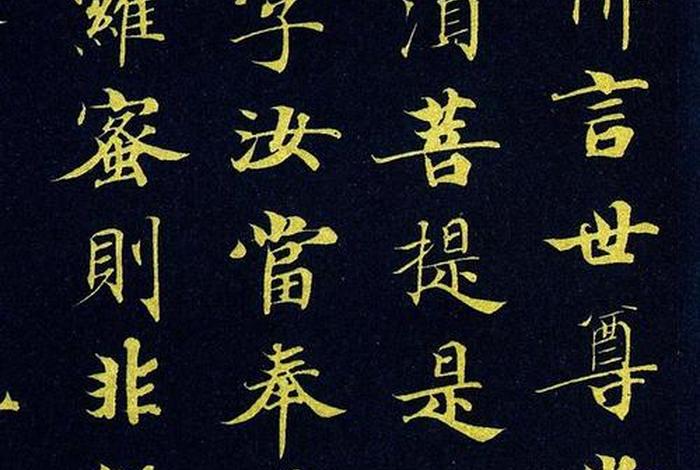 言世尊
須菩提是
字汝當奉
羅蜜則非